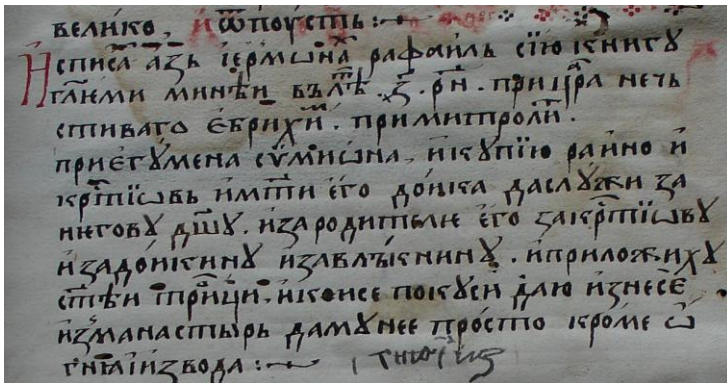 велико, и ѿпоусть :~
Исписа҃ азь іермѡна҃х рафаиль сїю книгу
гл҃еми минѣи въ лѣт҃. ҂з҃. рн҃. при цр҃а нечь
стиваго ебрихи҃м. при митропли҃т.
при егумена сѵмиѡна, и купїю раино и
кр҃тїѡвь и мт҃и его доика да служи за
негову дш҃у. и за родителе его за кр҃тїѡву
и за доикину и за влькнину. и приложиху
ст҃ѣи трои҃ци, и кои се покуси да ю изнесе
из манастырь да му нее просто кроме ѿ
гнѣ҃ла извода :~